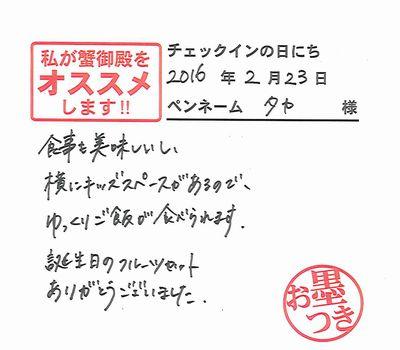 私が蟹御殿を
オススメ
します!!
チェックインの日にち
2016 年 2月 23日
ペンネーム タヤ 様
食事も美味しいし、
横にキッズスペースがあるので、
ゆっくりご飯が食べられます.
誕生日のフルーツセット
ありがとうございました.
お墨つき